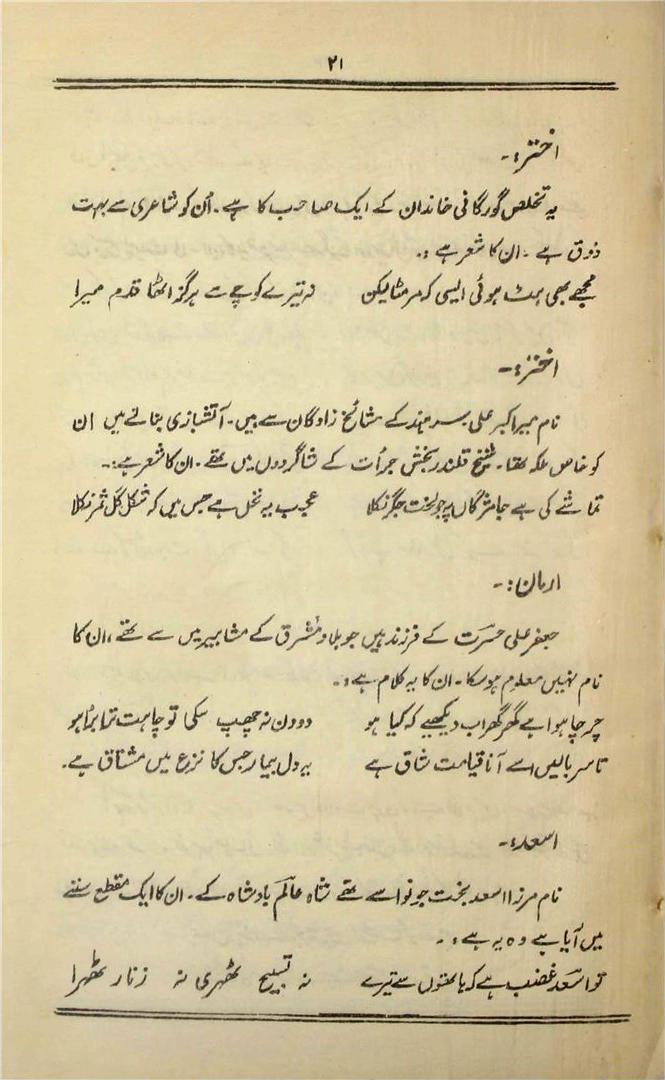 ۲۱
اختر:۔
یہ تخلص گورگانی خاندان کے ایک صاحب کا ہے۔ اُن کو شاعری سے بہت
ذوق ہے۔ ان کا شعر ہے:۔
مجھے بھی ہٹ ہوئی ایسی کہ مر مٹا لیکن نہ تیرے کوچے سے ہرگز اٹھا قدم میرا
اختر:۔
نام میر اکبر علی سرہند کے مشائخ زادگان سے ہیں۔ آتشبازی بنانے میں ان
کو خاص ملکہ تھا۔ شیخ قلندر بخش جرأت کے شاگردوں میں تھے۔ ان کا شعر ہے:۔
تماشے کی ہے جا مژگاں پہ جو لخت جگر نکلا عجب یہ نخل ہے جس میں کہ شکل گل ثمر نکلا
ارمان:۔
جعفر علی حسرت کے فرزند ہیں جو بلاد مشرق کے مشاہیر میں سے تھے، ان کا
نام نہیں معلوم ہو سکا۔ ان کا یہ کلام ہے:۔
چرچا ہوا ہے گھر گھر اب دیکھیے کہ کیا ہو دو دن نہ چھپ سکی تو چاہت ترا برا ہو
تا سر بالیں اسے آنا قیامت شاق ہے یہ دل بیمار جس کا نزع میں مشتاق ہے۔
اسعد:۔
نام مرزا اسعد بخت جو نواسے تھے شاہ عالم بادشاہ کے۔ ان کا ایک مقطع سننے
میں آیا ہے وہ یہ ہے:۔
تو اسعد غضب ہے کہ ہاتھوں سے تیرے نہ تسبیح ٹھہری نہ زنار ٹھہرا